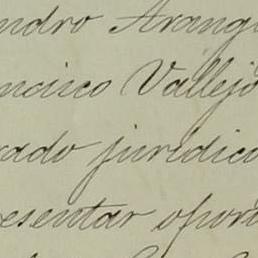 andro Arang
ncisco Vallejo
rado juridica
esentar oport